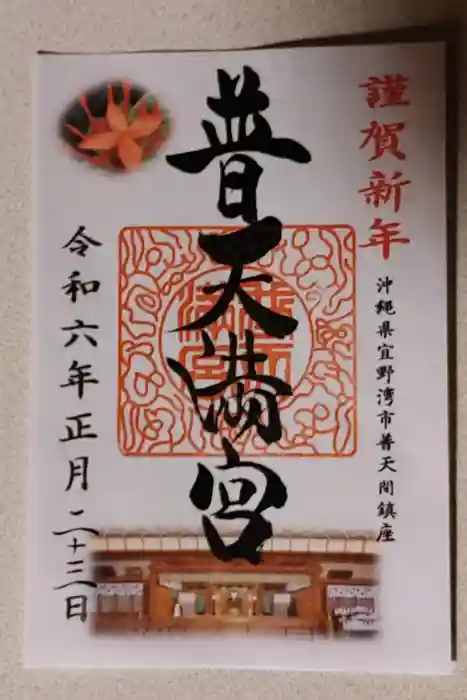 謹賀新年
沖縄県宜野湾市普天間鎮座
普天満宮
令和六年正月二十三日